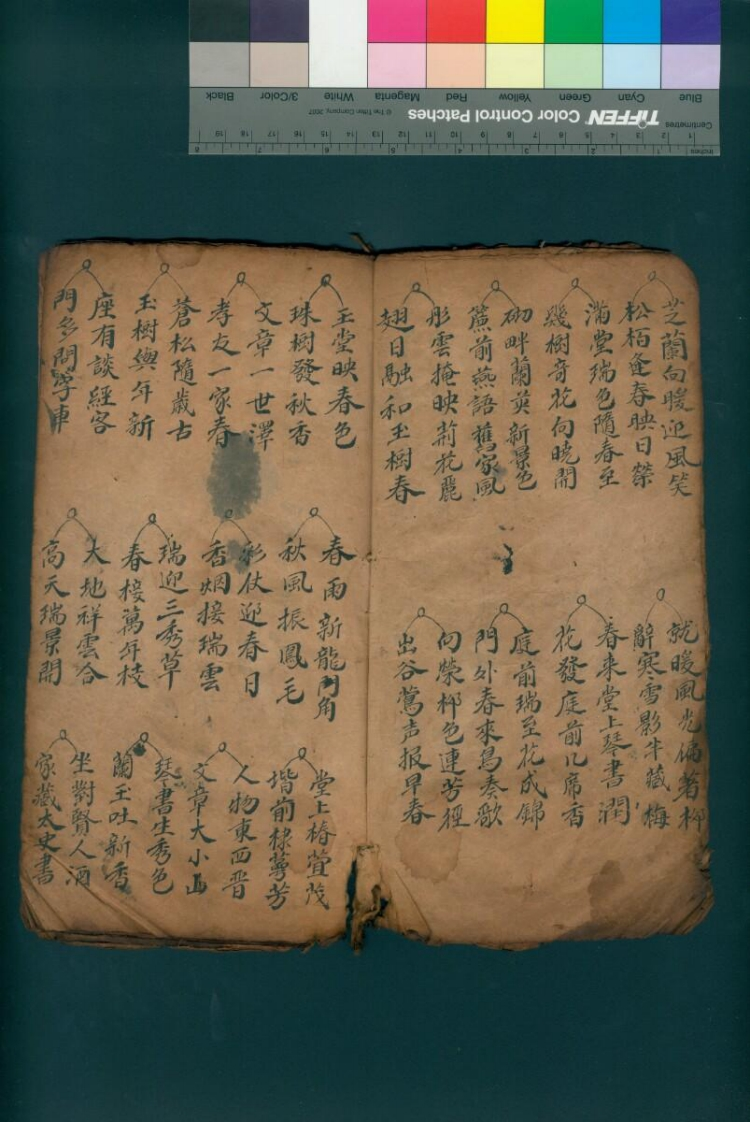 芝蘭向暖迎風笑
松栢逢春映日榮
滿堂瑞色隨春至
幾樹奇花向曉開
砌畔蘭英新景色
簾前燕語舊家風
彤雲掩映荊花麗
翅日融和玉樹春
就暖風光偏著柳
辭寒雪影半藏梅
春來堂上琴書潤
花發庭前几席香
庭前瑞至花成錦
門外春來鳥奏歌
向榮柳色連芳徑
出谷鶯声报早春
玉堂映春色
珠樹發秋香
文章一世澤
孝友一家春
蒼松隨歲古
玉樹與年新
座有談經客
門多問字車
春雨新龍角
秋風振鳳毛
彩仗迎春日
香烟接瑞雲
瑞迎三秀草
春接萬年枝
大地祥雲合
高天瑞景開
堂上椿萱茂
堦前棣萼芳
人物東西晋
文章大小山
琴書生秀色
蘭玉吐新香
坐對賢人酒
家藏太史書
TIFFEN Color Control Patches
© The Tiffen Company, 2007
Centimetres
Inches
Blue
Cyan
Green
Yellow
Red
Magenta
White
3/Color
Black